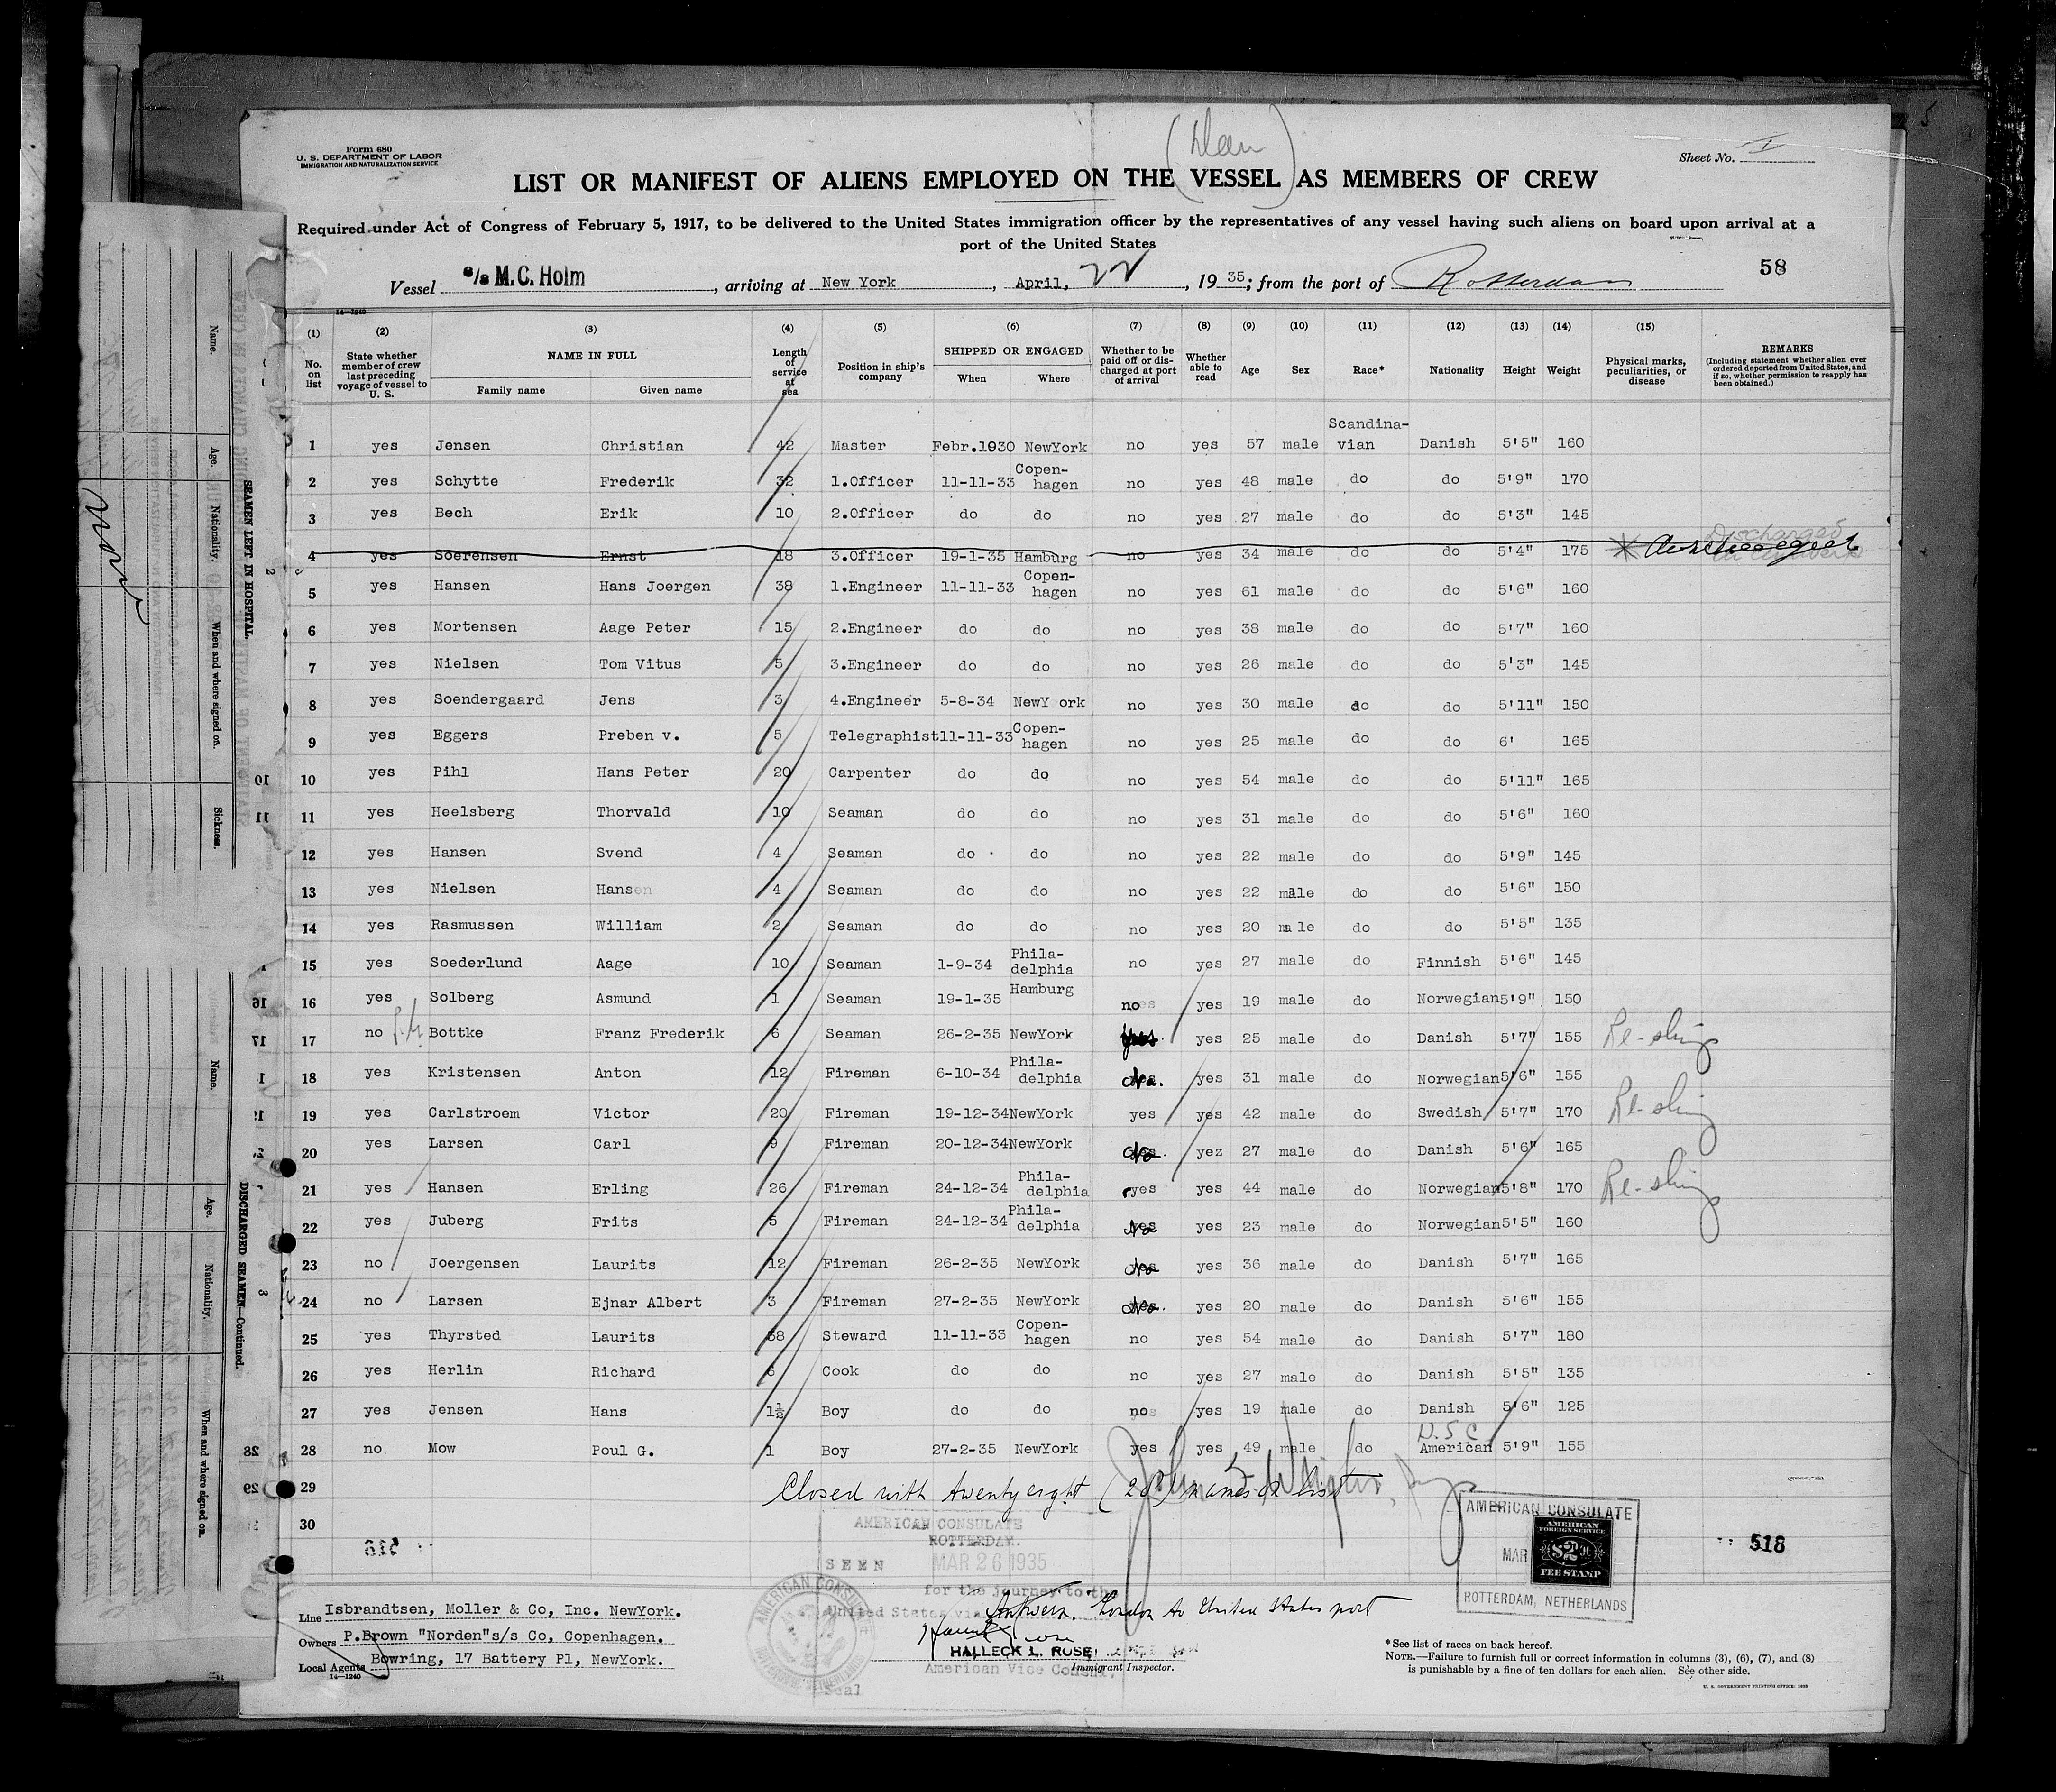 Form 680
U. S. DEPARTMENT OF LABOR
IMMIGRATION AND NATURALIZATION SERVICE
Sheet No. I
LIST OR MANIFEST OF ALIENS EMPLOYED ON THE VESSEL AS MEMBERS OF CREW
Required under Act of Congress of February 5, 1917, to be delivered to the United States immigration officer by the representatives of any vessel having such aliens on board upon arrival at a
port of the United States
58
Vessel s/s M.C. Holm, arriving at New York, April, 22, 1935; from the port of Rotterdam
(1) No. on list (2) State whether member of crew last preceding voyage of vessel to U. S. (3) NAME IN FULL Family name Given name (4) Length of service at sea (5) Position in ship's company (6) SHIPPED OR ENGAGED When Where (7) Whether to be paid off or discharged at port of arrival (8) Whether able to read (9) Age (10) Sex (11) Race* (12) Nationality (13) Height (14) Weight (15) Physical marks, peculiarities, or disease REMARKS (Including statement whether alien ever ordered deported from United States, and if so, whether permission to reapply has been obtained.)
1 yes Jensen Christian 42 Master Febr.1930 NewYork no yes 57 male Scandina-vian Danish 5'5" 160
2 yes Schytte Frederik 32 1.Officer 11-11-33 Copen-hagen no yes 48 male do do 5'9" 170
3 yes Bech Erik 10 2.Officer do do no yes 27 male do do 5'3" 145
4 yes Soerensen Ernst 18 3.Officer 19-1-35 Hamburg no yes 34 male do do 5'4" 175 Discharged
5 yes Hansen Hans Joergen 38 1.Engineer 11-11-33 Copen-hagen no yes 61 male do do 5'6" 160
6 yes Mortensen Aage Peter 15 2.Engineer do do no yes 38 male do do 5'7" 160
7 yes Nielsen Tom Vitus 5 3.Engineer do do no yes 26 male do do 5'3" 145
8 yes Soendergaard Jens 3 4.Engineer 5-8-34 NewY ork no yes 30 male do do 5'11" 150
9 yes Eggers Preben v. 5 Telegraphist 11-11-33 Copen-hagen no yes 25 male do do 6' 165
10 yes Pihl Hans Peter 20 Carpenter do do no yes 54 male do do 5'11" 165
11 yes Heelsberg Thorvald 10 Seaman do do no yes 31 male do do 5'6" 160
12 yes Hansen Svend 4 Seaman do do no yes 22 male do do 5'9" 145
13 yes Nielsen Hansen 4 Seaman do do no yes 22 male do do 5'6" 150
14 yes Rasmussen William 2 Seaman do do no yes 20 male do do 5'5" 135
15 yes Soederlund Aage 10 Seaman 1-9-34 Phila-delphia no yes 27 male do Finnish 5'6" 145
16 yes Solberg Asmund 1 Seaman 19-1-35 Hamburg no yes 19 male do Norwegian 5'9" 150
17 no Bottke Franz Frederik 6 Seaman 26-2-35 NewYork yes yes 25 male do Danish 5'7" 155 Re-ship
18 yes Kristensen Anton 12 Fireman 6-10-34 Phila-delphia No. yes 31 male do Norwegian 5'6" 155
19 yes Carlstroem Victor 20 Fireman 19-12-34 NewYork yes yes 42 male do Swedish 5'7" 170 Re-ship
20 yes Larsen Carl 9 Fireman 20-12-34 NewYork No. yez 27 male do Danish 5'6" 165
21 yes Hansen Erling 26 Fireman 24-12-34 Phila-delphia yes yes 44 male do Norwegian 5'8" 170 Re-ship
22 yes Juberg Frits 5 Fireman 24-12-34 Phila-delphia No yes 23 male do Norwegian 5'5" 160
23 no Joergensen Laurits 12 Fireman 26-2-35 NewYork No yes 36 male do Danish 5'7" 165
24 no Larsen Ejnar Albert 3 Fireman 27-2-35 NewYork No. yes 20 male do Danish 5'6" 155
25 yes Thyrsted Laurits 38 Steward 11-11-33 Copen-hagen no yes 54 male do Danish 5'7" 180
26 yes Herlin Richard 6 Cook do do no yes 27 male do Danish 5'5" 135
27 yes Jensen Hans 1½ Boy do do no yes 19 male do Danish 5'6" 125
28 no Mow Poul G. 1 Boy 27-2-35 NewYork yes yes 49 male do U.S.C. American 5'9" 155
29 Closed with twenty eight (28) names on list
30
AMERICAN CONSULATE
ROTTERDAM.
SEEN MAR 26 1935
for the journey to the
United States via Antwerp, London to United States port
HALLECK L. ROSE
American Vice Consul
Immigrant Inspector.
Seal
AMERICAN CONSULATE
MAR
AMERICAN FOREIGN SERVICE
$2
FEE STAMP
ROTTERDAM, NETHERLANDS
518
Line Isbrandtsen, Moller & Co, Inc. NewYork.
Owners P.Brown "Norden"s/s Co, Copenhagen.
Local Agents Bowring, 17 Battery Pl, NewYork.
14—1240
*See list of races on back hereof.
NOTE.—Failure to furnish full or correct information in columns (3), (6), (7), and (8)
is punishable by a fine of ten dollars for each alien. See other side.
U. S. GOVERNMENT PRINTING OFFICE
SEAMEN LEFT IN HOSPITAL.
Name.
Age.
Nationality.
When and where signed on.
Sickness.
DISCHARGED SEAMEN—Continued.
Name.
Age.
Nationality.
When and where signed on.